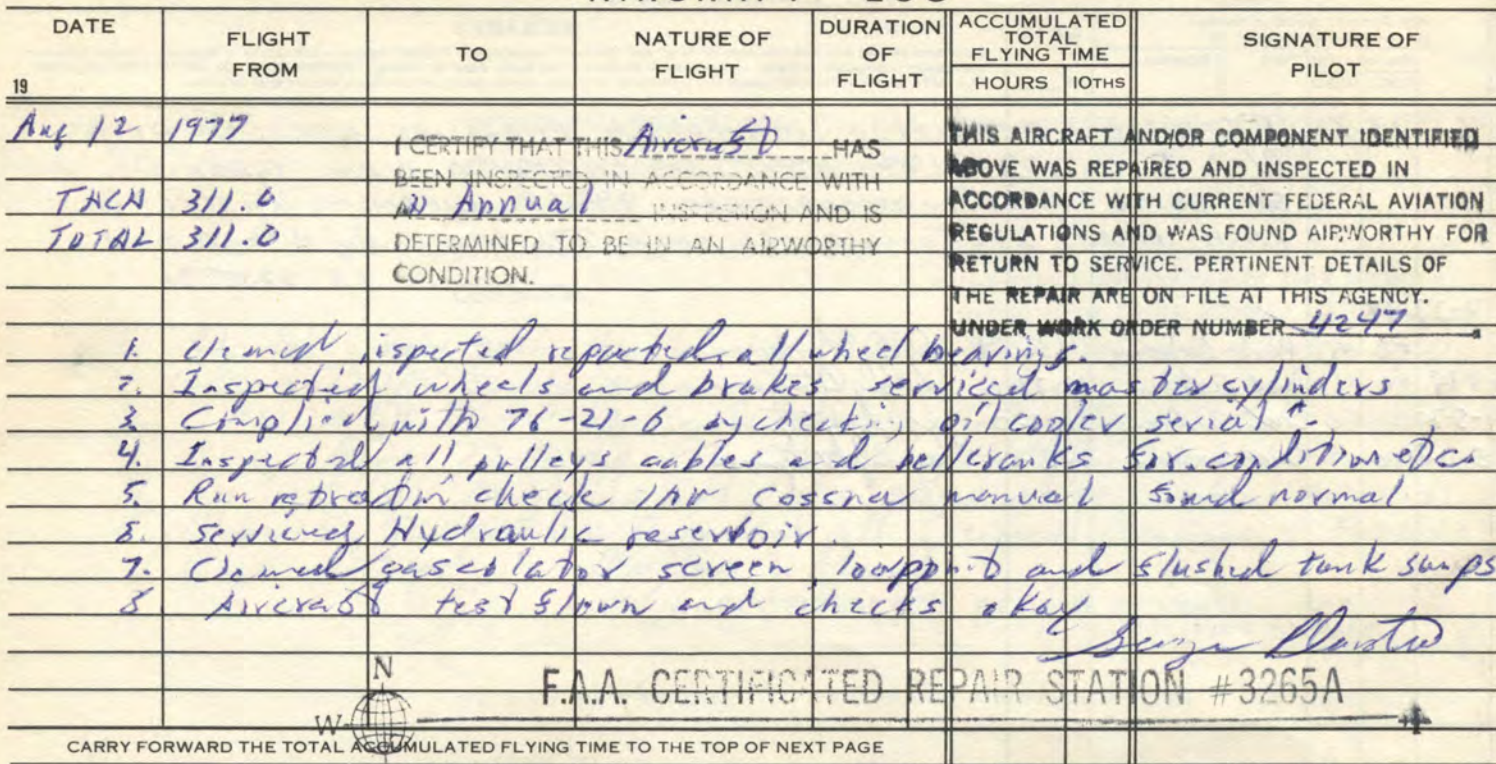 DATE
FLIGHT FROM
TO
NATURE OF FLIGHT
DURATION OF FLIGHT
ACCUMULATED TOTAL FLYING TIME
HOURS 10THS
SIGNATURE OF PILOT
19
Aug 12 1977
TACH 311.0
TOTAL 311.0
I CERTIFY THAT THIS Aircraft HAS
BEEN INSPECTED IN ACCORDANCE WITH
AN Annual INSPECTION AND IS
DETERMINED TO BE IN AN AIRWORTHY
CONDITION.
THIS AIRCRAFT AND/OR COMPONENT IDENTIFIED
ABOVE WAS REPAIRED AND INSPECTED IN
ACCORDANCE WITH CURRENT FEDERAL AVIATION
REGULATIONS AND WAS FOUND AIRWORTHY FOR
RETURN TO SERVICE. PERTINENT DETAILS OF
THE REPAIR ARE ON FILE AT THIS AGENCY.
UNDER WORK ORDER NUMBER 4247
1. Cleaned inspected repacked all wheel bearings.
2. Inspected wheels and brakes serviced master cylinders
3. Complied with 76-21-6 by checking oil cooler serial #.
4. Inspected all pulleys cables and bellcranks for condition etc.
5. Run retraction check Cessna manual found normal
6. Serviced Hydraulic reservoir.
7. Cleaned gascolator screen, lowpoint and flushed tank sumps
8. Aircraft test flown and checks okay
N
W
F.A.A. CERTIFICATED REPAIR STATION #3265A
CARRY FORWARD THE TOTAL ACCUMULATED FLYING TIME TO THE TOP OF NEXT PAGE